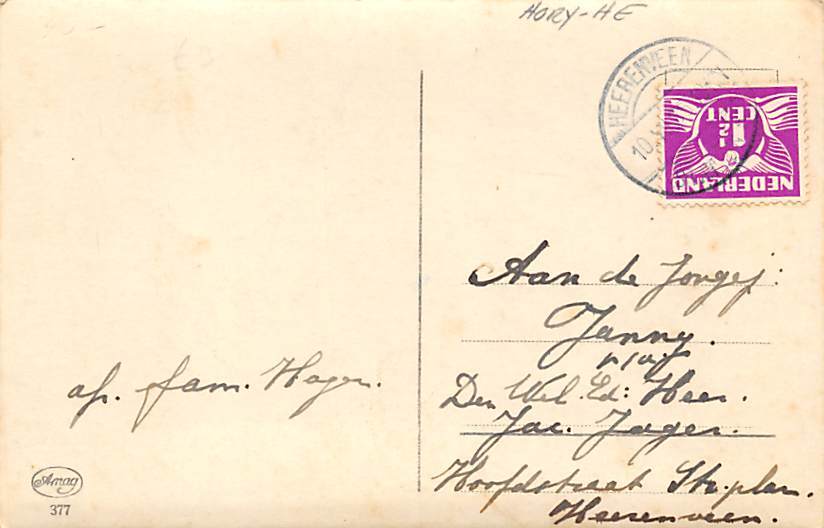 HORY-HE
HEERENVEEN
10
1½
CENT
NEDERLAND
Aan de Jongej:
Janny.
p/a
Den Wel. Ed: Heer.
Jac. Jager.
Hoofdstraat
Heerenveen.
af. fam. Hagen.
Amag
377